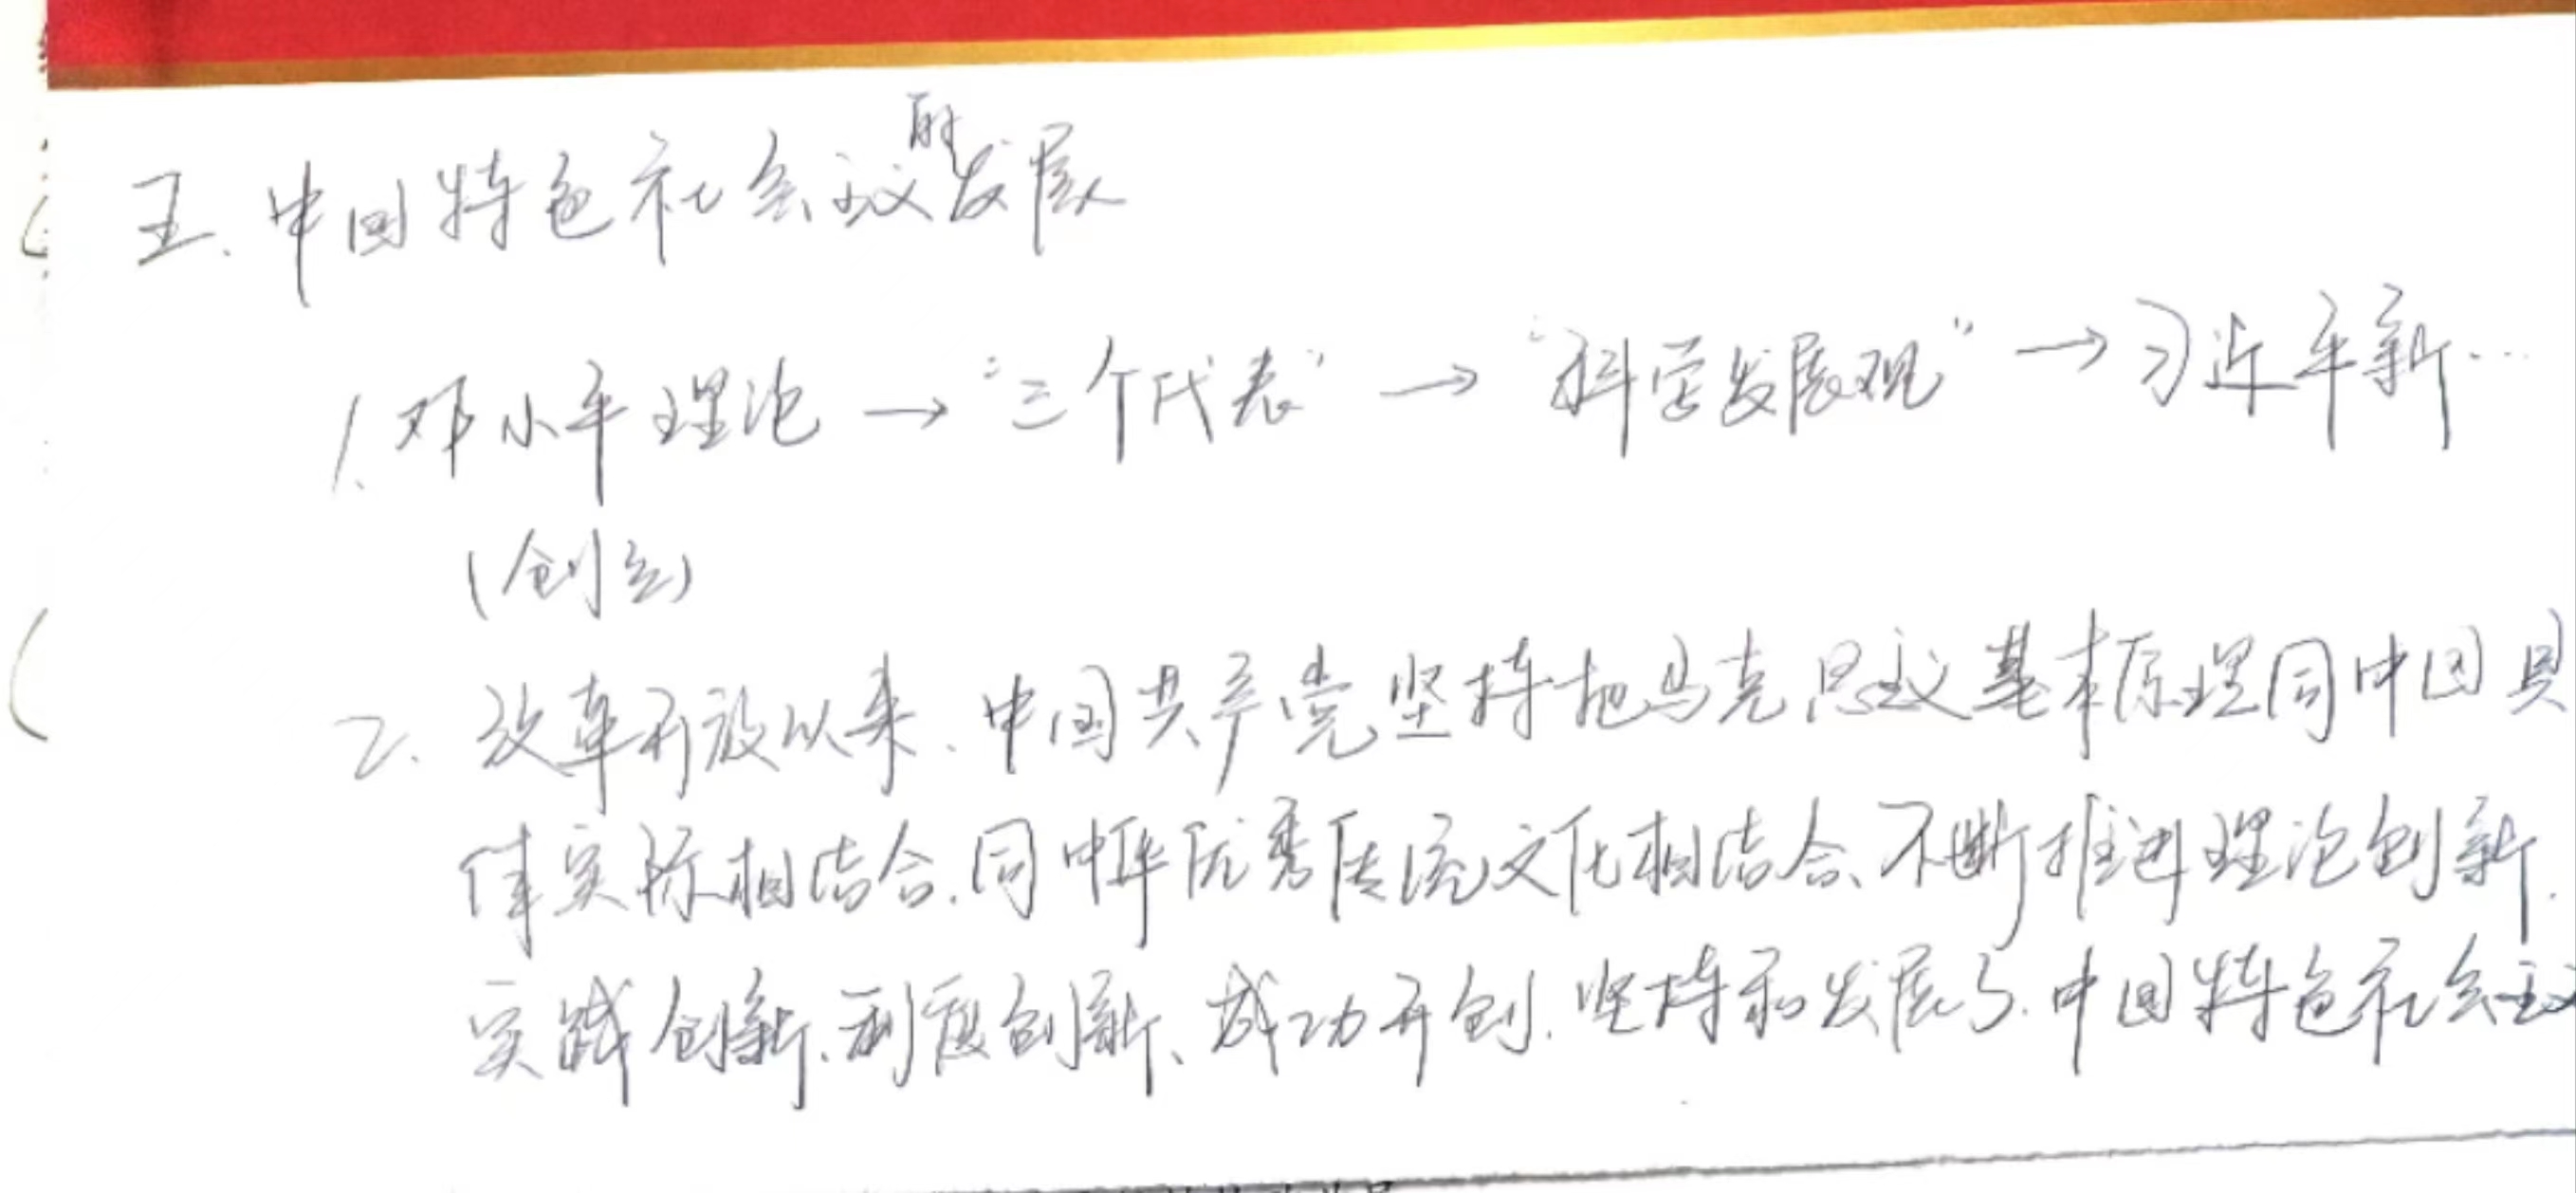 五、中国特色社会主义的发展
1. 邓小平理论 → "三个代表" → "科学发展观" → 习近平新…
(创立)
2. 改革开放以来、中国共产党坚持把马克思主义基本原理同中国具
体实际相结合、同中华优秀传统文化相结合、不断推进理论创新、
实践创新、制度创新、成功开创、坚持和发展了中国特色社会主义